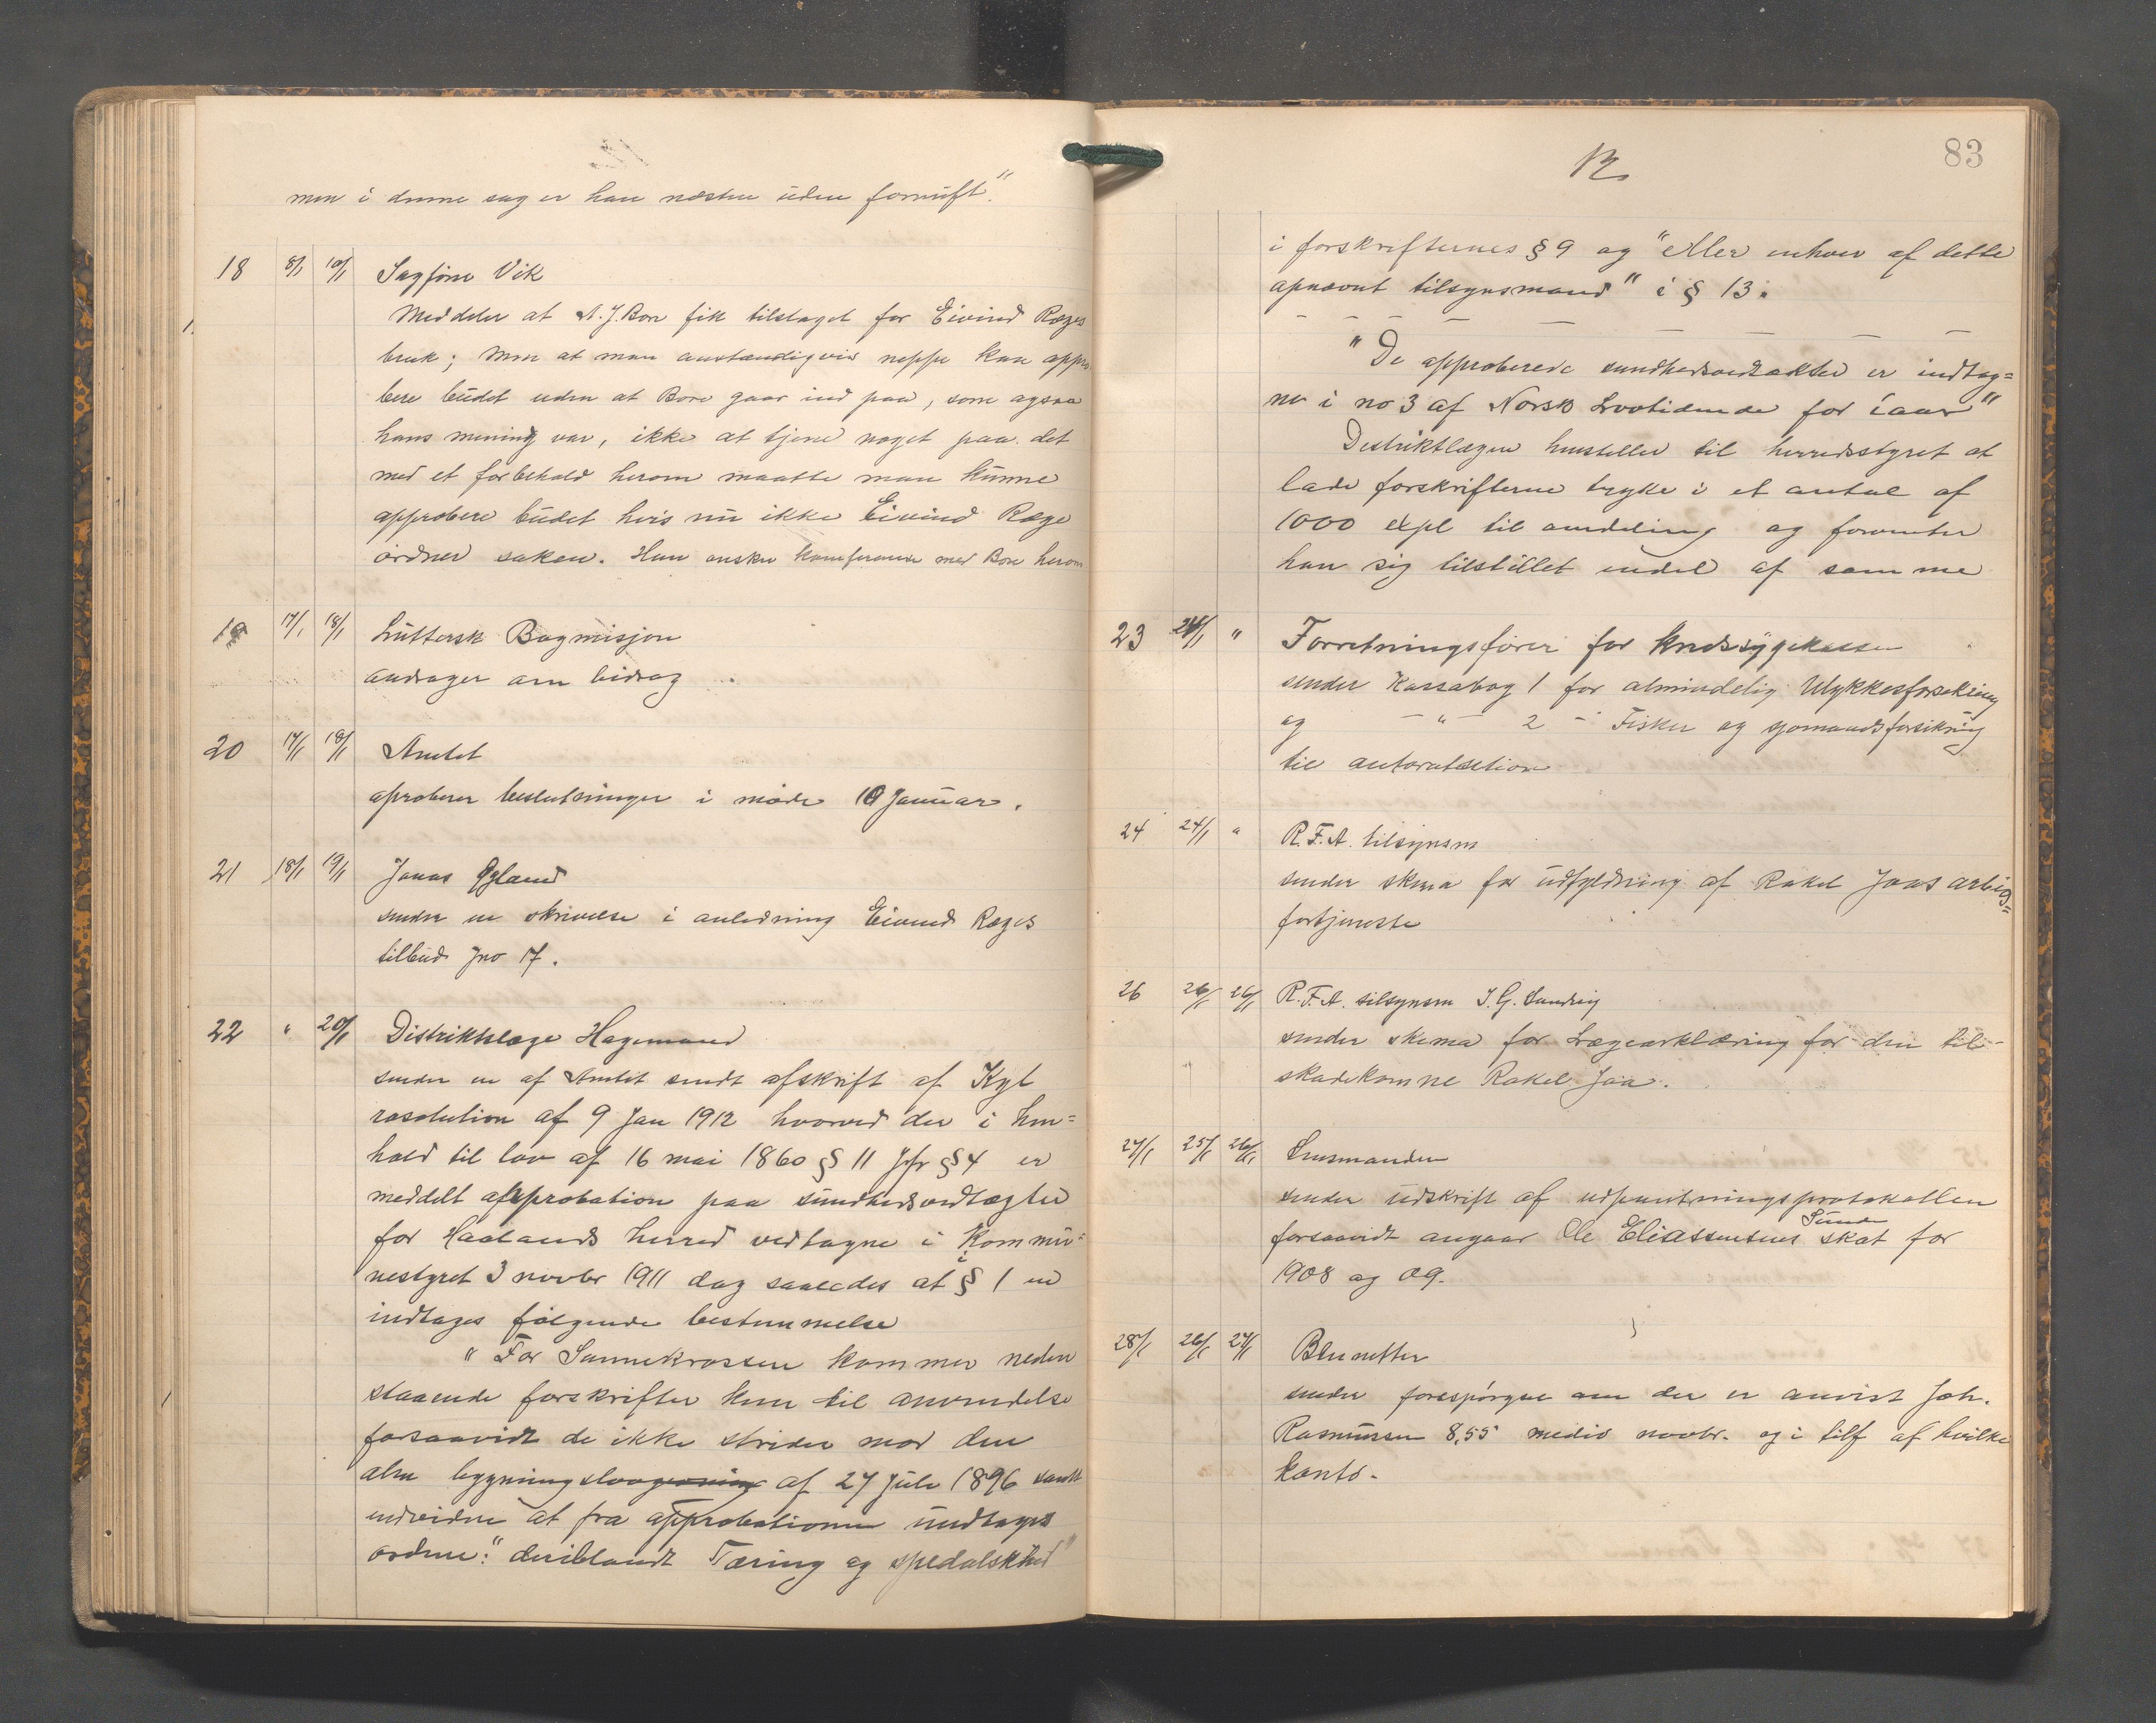 12
men i denne sag er han næsten uden fornuft."
18 8/1 10/1 Sagfører Vik
Meddeler at A. J. Bore fik tilslaget for Eivind Ræges
bruk; men at man anstændigvis neppe kan appro
bere budet uden at Bore gaar ind paa, som ogsaa
hans mening var, ikke at tjene noget paa det
med et forbehold herom maatte man kunne
approbere budet hvis nu ikke Eivind Ræge
ordner saken. Han ønsker konferance med Bore herom
19 17/1 18/1 Luttersk Bogmisjon
andrager om bidrag
20 17/1 18/1 Amtet
aproberer beslutninger i møde 10 Januar.
21 18/1 19/1 Jonas Øgland
sender en skrivelse i anledning Eivind Ræges
tilbud Jno 17.
22 " 20/1 Distriktslæge Hagemann
sender en af Amtet sendt afskrift af Kgl
resolution af 9 Jan 1912 hvorved der i hen=
hold til lov af 16 mai 1860 § 11 Jfr § 4 er
meddelt approbation paa sundhedsvedtægter
for Haalands herred vedtagne i Kommu=
nestyret 3 novbr 1911 dog saaledes at § 1 
indtages følgende bestemmelse
" For Sunnekrossen kommer neden
staaende forskrifter kun til anvendelse
forsaavidt de ikke strider mod den
alm bygningslovgivning af 27 Juli 1896 samt
endvidere at fra approbationen undtages
ordene: " deriblandt Tæring og spedalskhed"
83
12
i forskrifternes § 9 og "eller enhver af dette
opnævnt tilsynsmand" i § 13.
"De approberede sundhedsvedtækter er indtag=
ne i no 3 af Norsk Lovtidende for iaar"
Distriktlægen henstiller til herredsstyret at
lade forskrifterne tryke i et antal af
1000 expl til omdeling og forventer
han sig tilstillet endel af samme
23 24/1 " Forretningsfører for Kredssygekassen
sender Kassabog 1 for almindelig Ulykkesforsikring
og — " — 2 - Fisker og sjomandsforsikring
til autoratsetion
24 24/1 " R.F.A. tilsynsm
sender skema for udfyldning af Rakel Jaas arbeids=
fortjeneste
26 26/1 26/1 R.F.A. tilsynsm I. G.
sender skema for Lægeerklæring for den til-
skadekomne Rakel Jaa.
27/1 25/1 26/1 Lensmanden
sender udskrift af udpantningsprotokollen
forsaavidt angaar Ole Eliassensens Sunde skat for
1908 og 09.
28/1 26/1 27/1
sender forespørgse om der er anvist Joh.
Rasmussen 8,55 medio novbr. og i tilf af hvilke
konto.